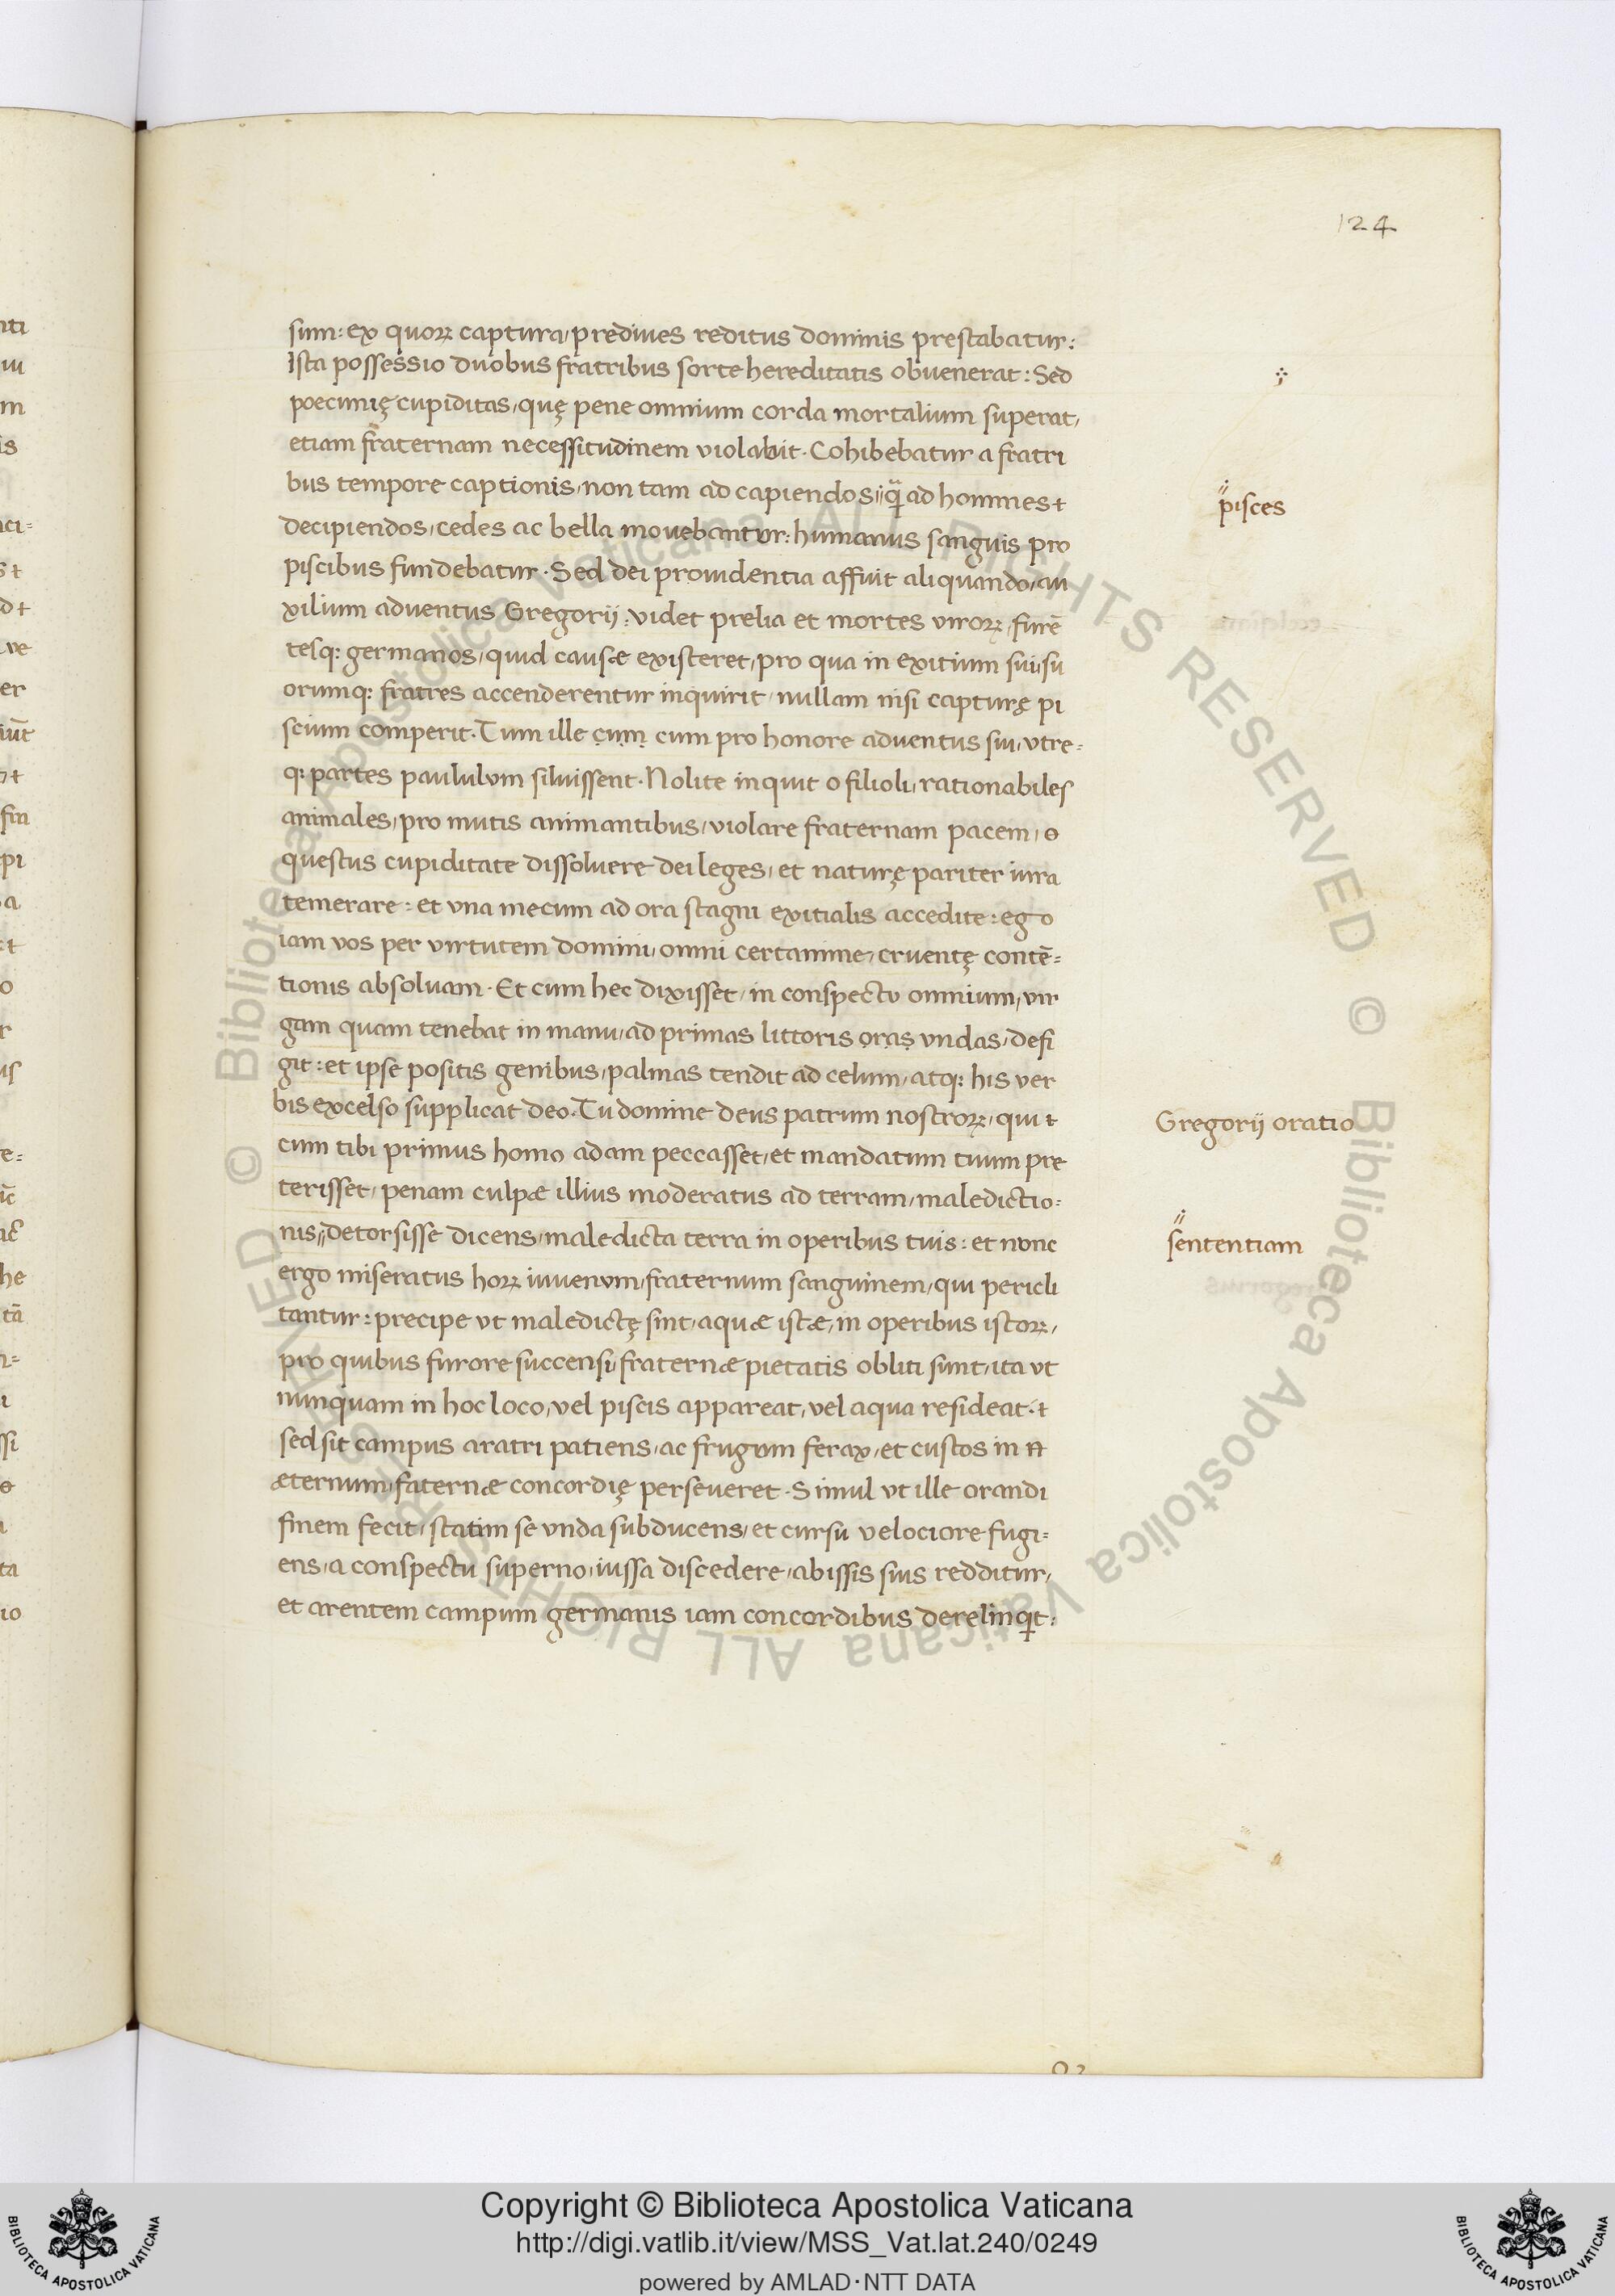 124
sum: ex quoꝝ captura, prediues reditus dominis prestabatur:
Ista possessio duobus fratribus sorte hereditatis obuenerat: Sed
poecunię cupiditas, quę pene omnium corda mortalium superat,
etiam fraternam necessitudinem violabit. Cohibebatur a fratri
bus tempore captionis, non tam ad capiendos, q̃ ad homines
pisces
decipiendos, cedes ac bella mouebantur: humanus sanguis pro
piscibus fundebatur. Sed dei prouidentia affuit aliquando, au
xilium aduentus Gregorij: videt prelia et mortes viroꝝ, furẽ
tesq: germanos, quid causæ existeret, pro qua in exitium sui, su
orumq: fratres accenderentur inquirit, nullam nisi capturę pi
scium comperit. Tum ille cum cum pro honore aduentus sui, vtre-
q: partes paululum siluissent. Nolite inquit o filioli, rationabiles
animales, pro mutis animantibus, violare fraternam pacem, o
questus cupiditate dissoluere dei leges, et naturę pariter iura
temerare: et vna mecum ad ora stagni exitialis accedite: ego
iam vos per virtutem domini, omni certamine, cruentę contẽ-
tionis absoluam. Et cum hec dixisset, in conspectu omnium, vir
gam quam tenebat in manu, ad primas littoris oras vndas, defi
git: et ipse positis genibus, palmas tendit ad celum, atq: his ver
bis excelso supplicat deo. Tu domine deus patrum nostroꝝ, qui
Gregorij oratio
cum tibi primus homo adam peccasset, et mandatum tuum pre
terisset, penam culpæ illius moderatus ad terram, maledictio-
nis, detorsisse dicens, maledicta terra in operibus tuis: et nunc
sententiam
ergo miseratus hoꝝ iuuenum, fraternum sanguinem, qui pericli
tantur: precipe vt maledictę sint, aquæ istæ, in operibus istoꝝ,
pro quibus furore succensi, fraternæ pietatis obliti sunt, ita vt
nunquam in hoc loco, vel piscis appareat, vel aqua resideat.
sed sit campus aratri patiens, ac frugum ferax, et custos in
æternum, faternæ concordię perseueret. Simul vt ille orandi
finem fecit, statim se vnda subducens, et cursu velociore fugi-
ens, a conspectu superno, iussa discedere, abissis suis redditur,
et arentem campum germanis iam concordibus derelinqit:
Copyright © Biblioteca Apostolica Vaticana
http://digi.vatlib.it/view/MSS_Vat.lat.240/0249
powered by AMLAD·NTT DATA
BIBLIOTECA APOSTOLICA VATICANA
BIBLIOTECA APOSTOLICA VATICANA
© Biblioteca Apostolica Vaticana ALL RIGHTS RESERVED
© Biblioteca Apostolica Vaticana ALL RIGHTS RESERVED